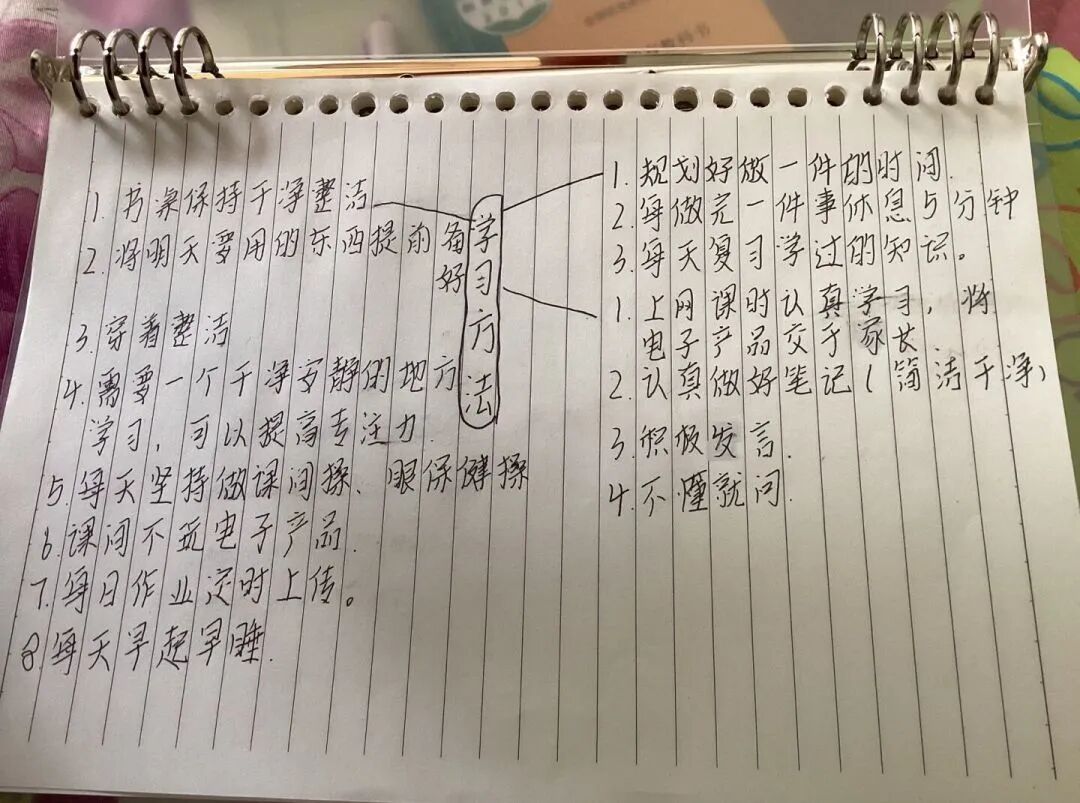 教科书
学习方法
1. 书桌保持干净整洁
2. 将明天要用的东西提前备
好
3. 穿着整洁
4. 需要一个干净安静的地方
学习，可以提高专注力.
5. 每天坚持做课间操、眼保健操
6. 课间不玩电子产品.
7. 每日作业定时上传。
8. 每天早起早睡.
1. 规划好做一件的时间.
2. 每做完一件事休息5分钟
3. 每天复习学过的知识。
1. 上网课时认真学习，将
电子产品交于家长.
2. 认真做好笔记(简洁干净)
3. 积极发言.
4. 不懂就问.